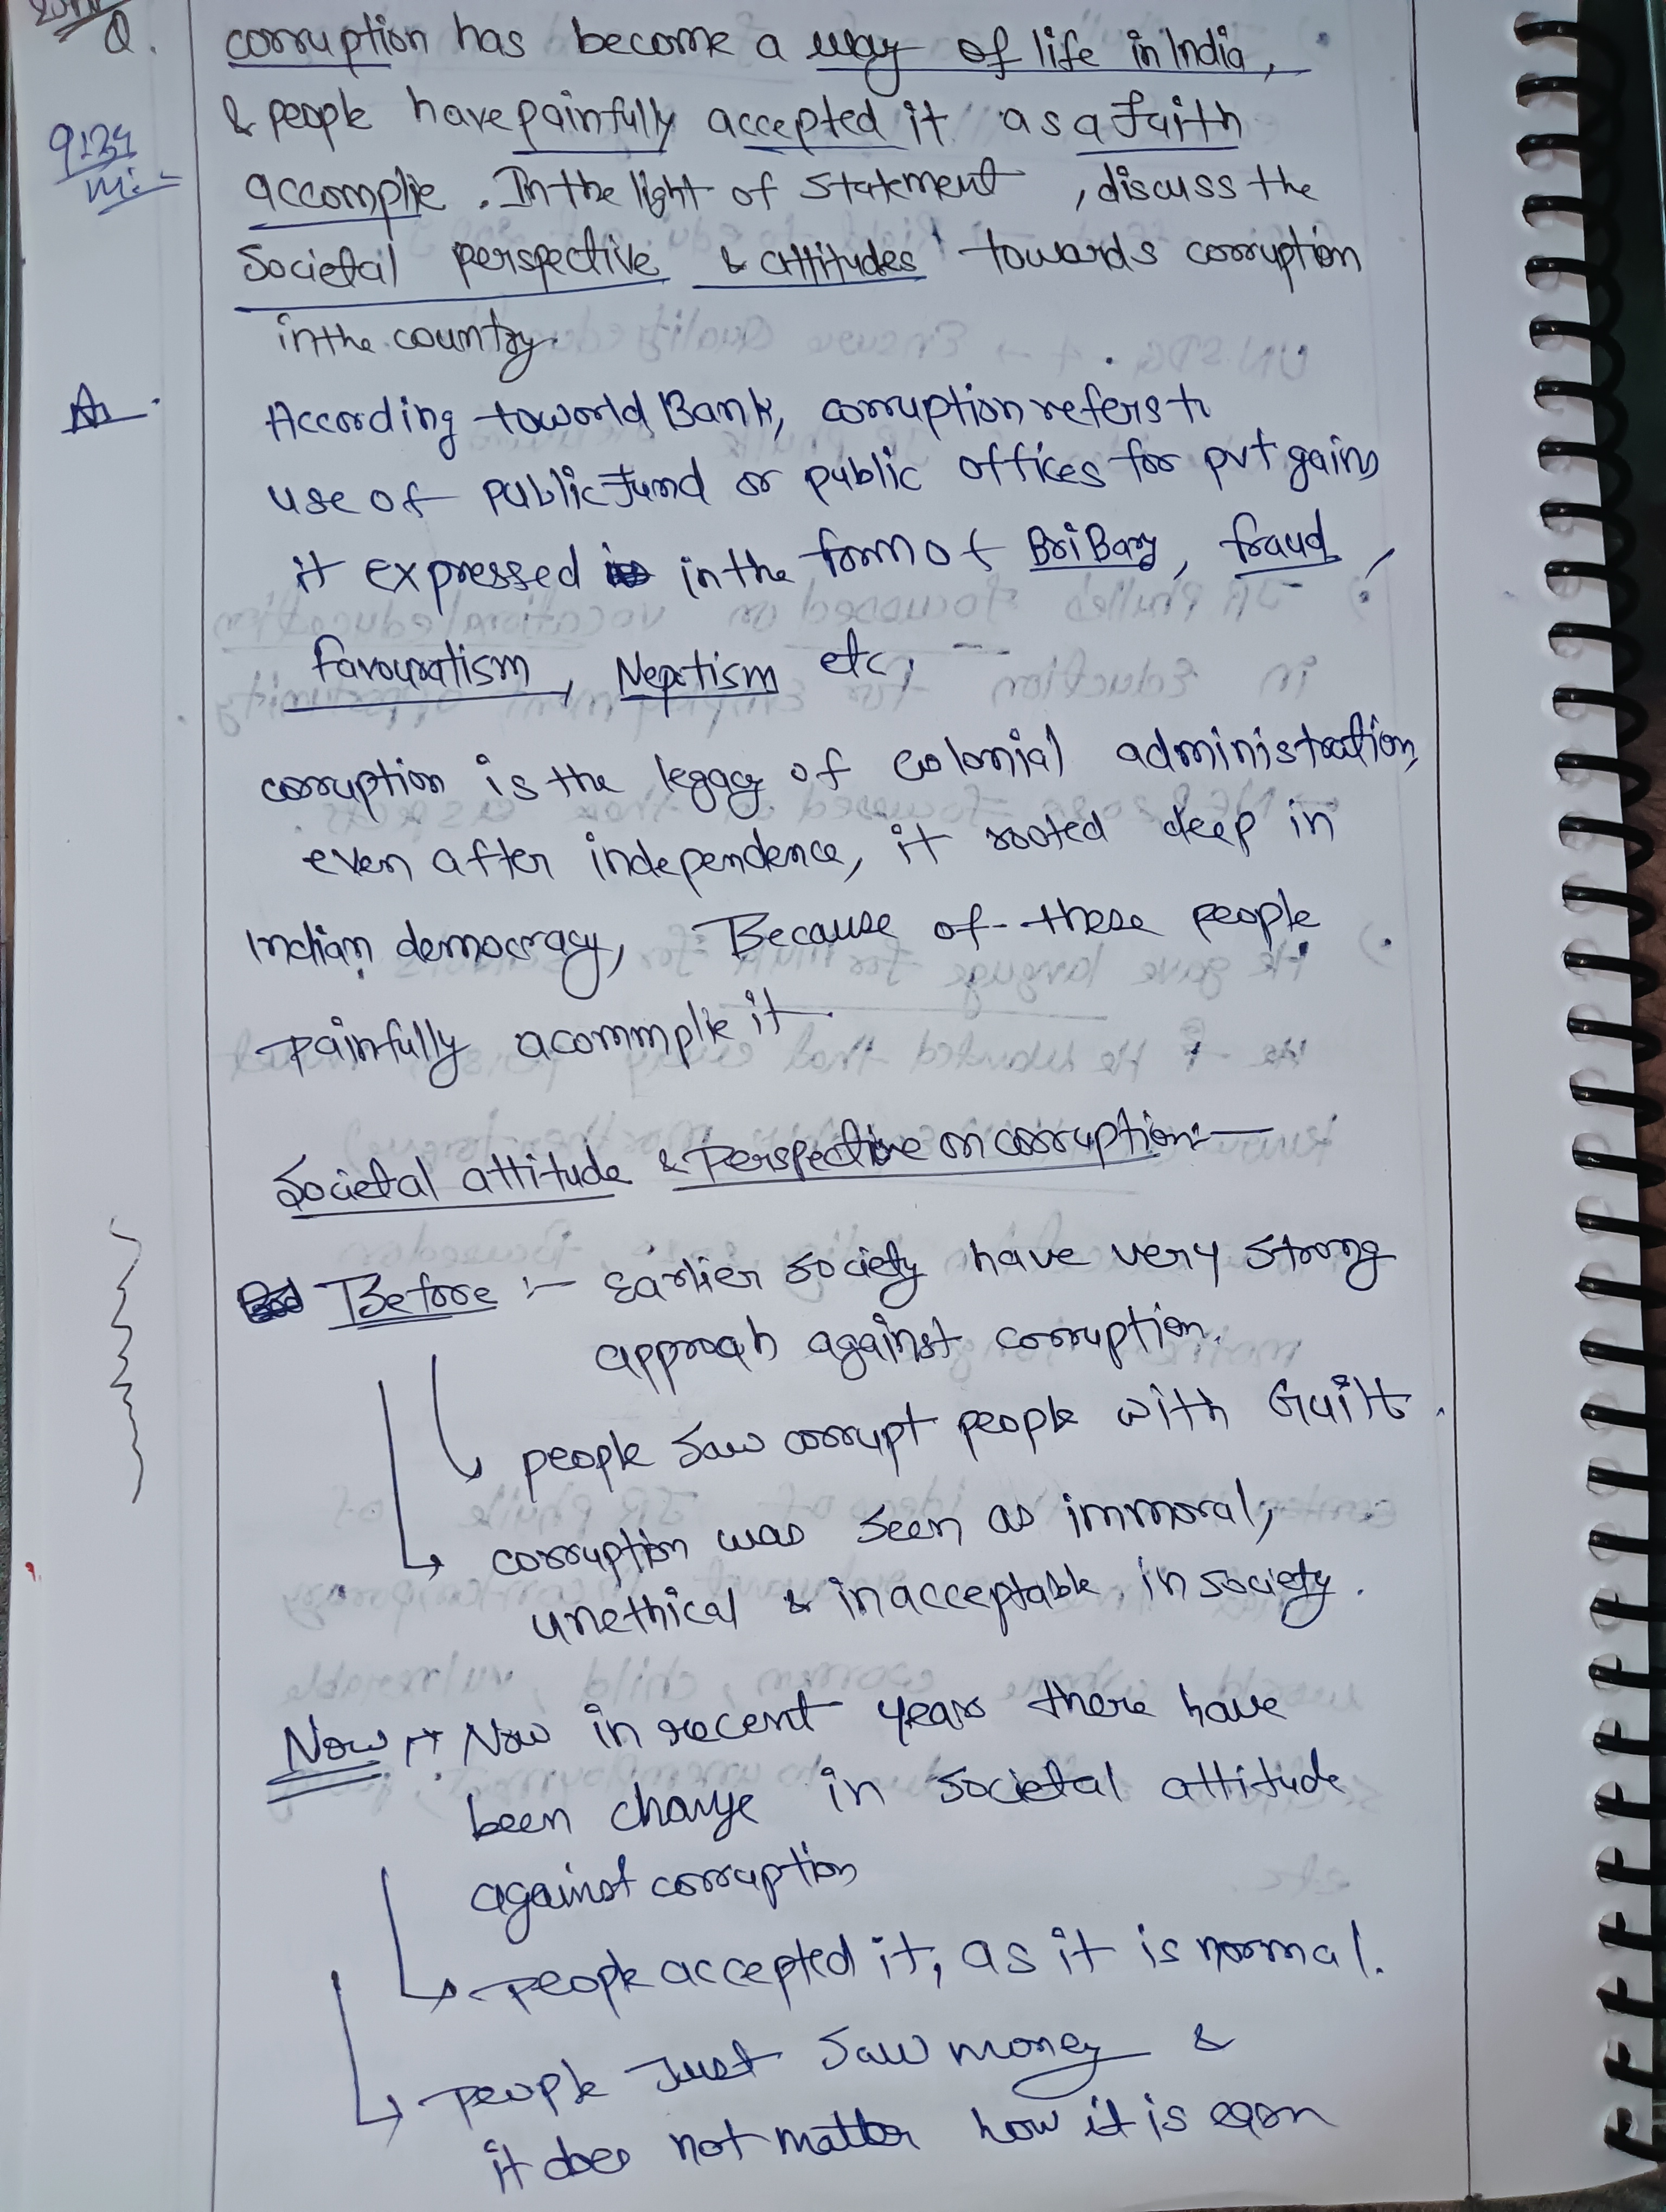 Q. corruption has become a way of life in India,
& people have painfully accepted it as a faith
9:24
accomplie. In the light of statement, discuss the
Societal perspective & attitudes towards corruption
in the country.
According to world Bank, corruption refers to
use of public fund or public offices for pvt gains
it expressed in the form of BriBary, fraud,
favouratism, Neptism etc.
corruption is the legacy of colonial administration,
even after independence, it rooted deep in
Indian democracy, Because of these people
painfully acommplie it.
Societal attitude & Perspective on corruption:-
Before :- Earlier society have very strong
approah against corruption.
people saw corrupt people with Guilt.
corruption was seen as immoral,
unethical & inacceptable in society.
Now Now in recent years there have
been change in societal attitude
against corruption
people accepted it, as it is normal.
people Just saw money &
it does not matter how it is earn